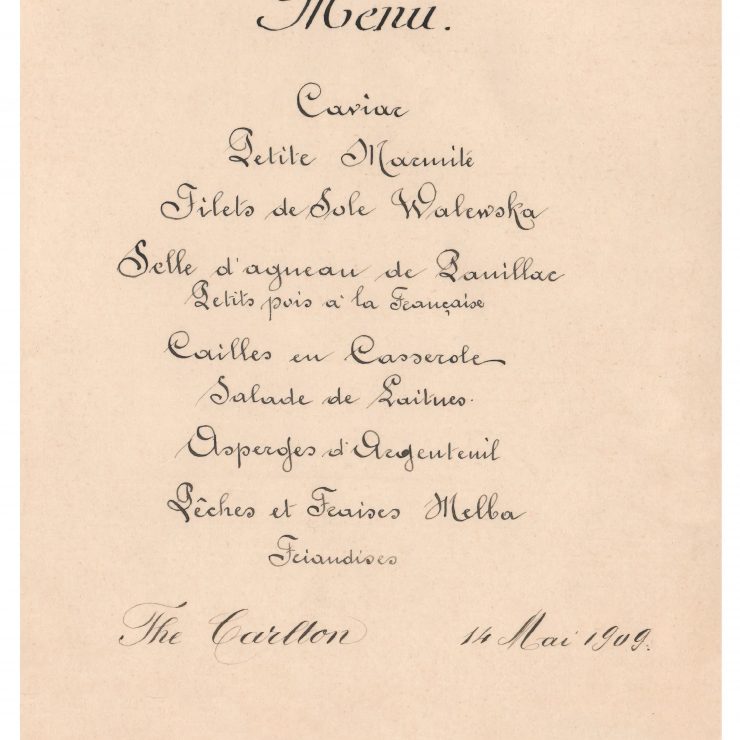 Menu.
Caviar
Petite Marmite
Filets de Sole Walewska
Selle d'agneau de Pauillac
Petits pois à la Française
Cailles en Casserole
Salade de Laitues.
Asperges d'Argenteuil
Pêches et Fraises Melba
Friandises
The Carlton 14 Mai 1909.